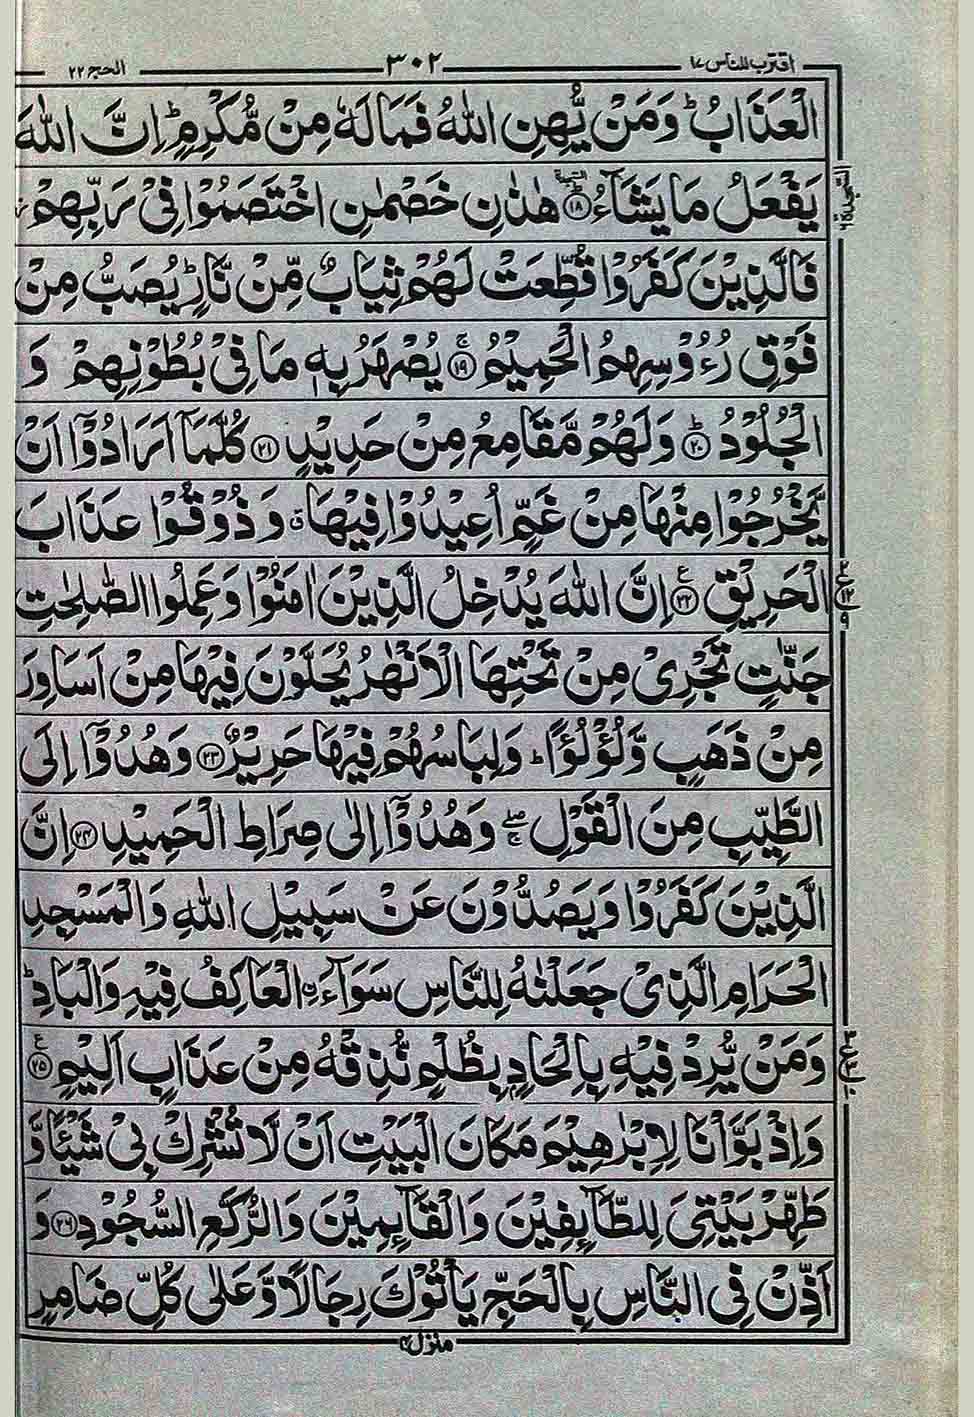 اقترب للناس ١٧ ٣٠٢ الحج ٢٢
الْعَذَابُ ؕ وَمَنْ يُّهِنِ اللّٰهُ فَمَا لَهٗ مِنْ مُّكْرِمٍ ؕ اِنَّ اللّٰهَ
يَفْعَلُ مَا يَشَآءُ ۩ ﴿١٨﴾ هٰذٰنِ خَصْمٰنِ اخْتَصَمُوْا فِيْ رَبِّهِمْ ز
فَالَّذِيْنَ كَفَرُوْا قُطِّعَتْ لَهُمْ ثِيَابٌ مِّنْ نَّارٍ ؕ يُصَبُّ مِنْ
فَوْقِ رُءُوْسِهِمُ الْحَمِيْمُ ﴿١٩﴾ۚ يُصْهَرُ بِهٖ مَا فِيْ بُطُوْنِهِمْ وَ
الْجُلُوْدُ ﴿٢٠﴾ؕ وَلَهُمْ مَّقَامِعُ مِنْ حَدِيْدٍ ﴿٢١﴾ كُلَّمَآ اَرَادُوْٓا اَنْ
يَّخْرُجُوْا مِنْهَا مِنْ غَمٍّ اُعِيْدُوْا فِيْهَا ق وَذُوْقُوْا عَذَابَ
الْحَرِيْقِ ﴿٢٢﴾ع اِنَّ اللّٰهَ يُدْخِلُ الَّذِيْنَ اٰمَنُوْا وَعَمِلُوا الصّٰلِحٰتِ
جَنّٰتٍ تَجْرِيْ مِنْ تَحْتِهَا الْاَنْهٰرُ يُحَلَّوْنَ فِيْهَا مِنْ اَسَاوِرَ
مِنْ ذَهَبٍ وَّلُؤْلُؤًا ؕ وَلِبَاسُهُمْ فِيْهَا حَرِيْرٌ ﴿٢٣﴾ وَهُدُوْٓا اِلَى
الطَّيِّبِ مِنَ الْقَوْلِ ۖۚ وَهُدُوْٓا اِلٰى صِرَاطِ الْحَمِيْدِ ﴿٢٤﴾ اِنَّ
الَّذِيْنَ كَفَرُوْا وَيَصُدُّوْنَ عَنْ سَبِيْلِ اللّٰهِ وَالْمَسْجِدِ
الْحَرَامِ الَّذِيْ جَعَلْنٰهُ لِلنَّاسِ سَوَآءَ اِۨلْعَاكِفُ فِيْهِ وَالْبَادِ ؕ
وَمَنْ يُّرِدْ فِيْهِ بِاِلْحَادٍۭ بِظُلْمٍ نُّذِقْهُ مِنْ عَذَابٍ اَلِيْمٍ ﴿٢٥﴾ع
وَاِذْ بَوَّاْنَا لِاِبْرٰهِيْمَ مَكَانَ الْبَيْتِ اَنْ لَّا تُشْرِكْ بِيْ شَيْئًا وَّ
طَهِّرْ بَيْتِيَ لِلطَّآئِفِيْنَ وَالْقَآئِمِيْنَ وَالرُّكَّعِ السُّجُوْدِ ﴿٢٦﴾ وَ
اَذِّنْ فِي النَّاسِ بِالْحَجِّ يَاْتُوْكَ رِجَالًا وَّعَلٰى كُلِّ ضَامِرٍ
منزل ٤